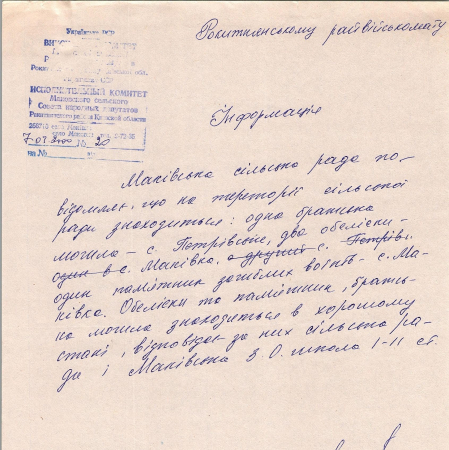 Українська РСР
Рокитнянському райвійськкомату
ИСПОЛНИТЕЛЬНЫЙ КОМИТЕТ
Маковского сельского
Совета народных депутатов
Рокитнянского района Киевской области
7.02.2000 № 20
на №
Інформація
Маківська сільська рада по-
відомляє, що на території сільської
ради знаходиться: одна братська
могила - с. Петрівське, два обеліски -
один в с. Маківка, а другий с. Петрівс.
один памятник загиблих воїнів - с. Ма-
ківка. Обеліски та памятник, братсь-
ка могила знаходиться в хорошому
стані, відповідає за них сільська ра-
да і Маківська З.О. школа І-ІІ ст.